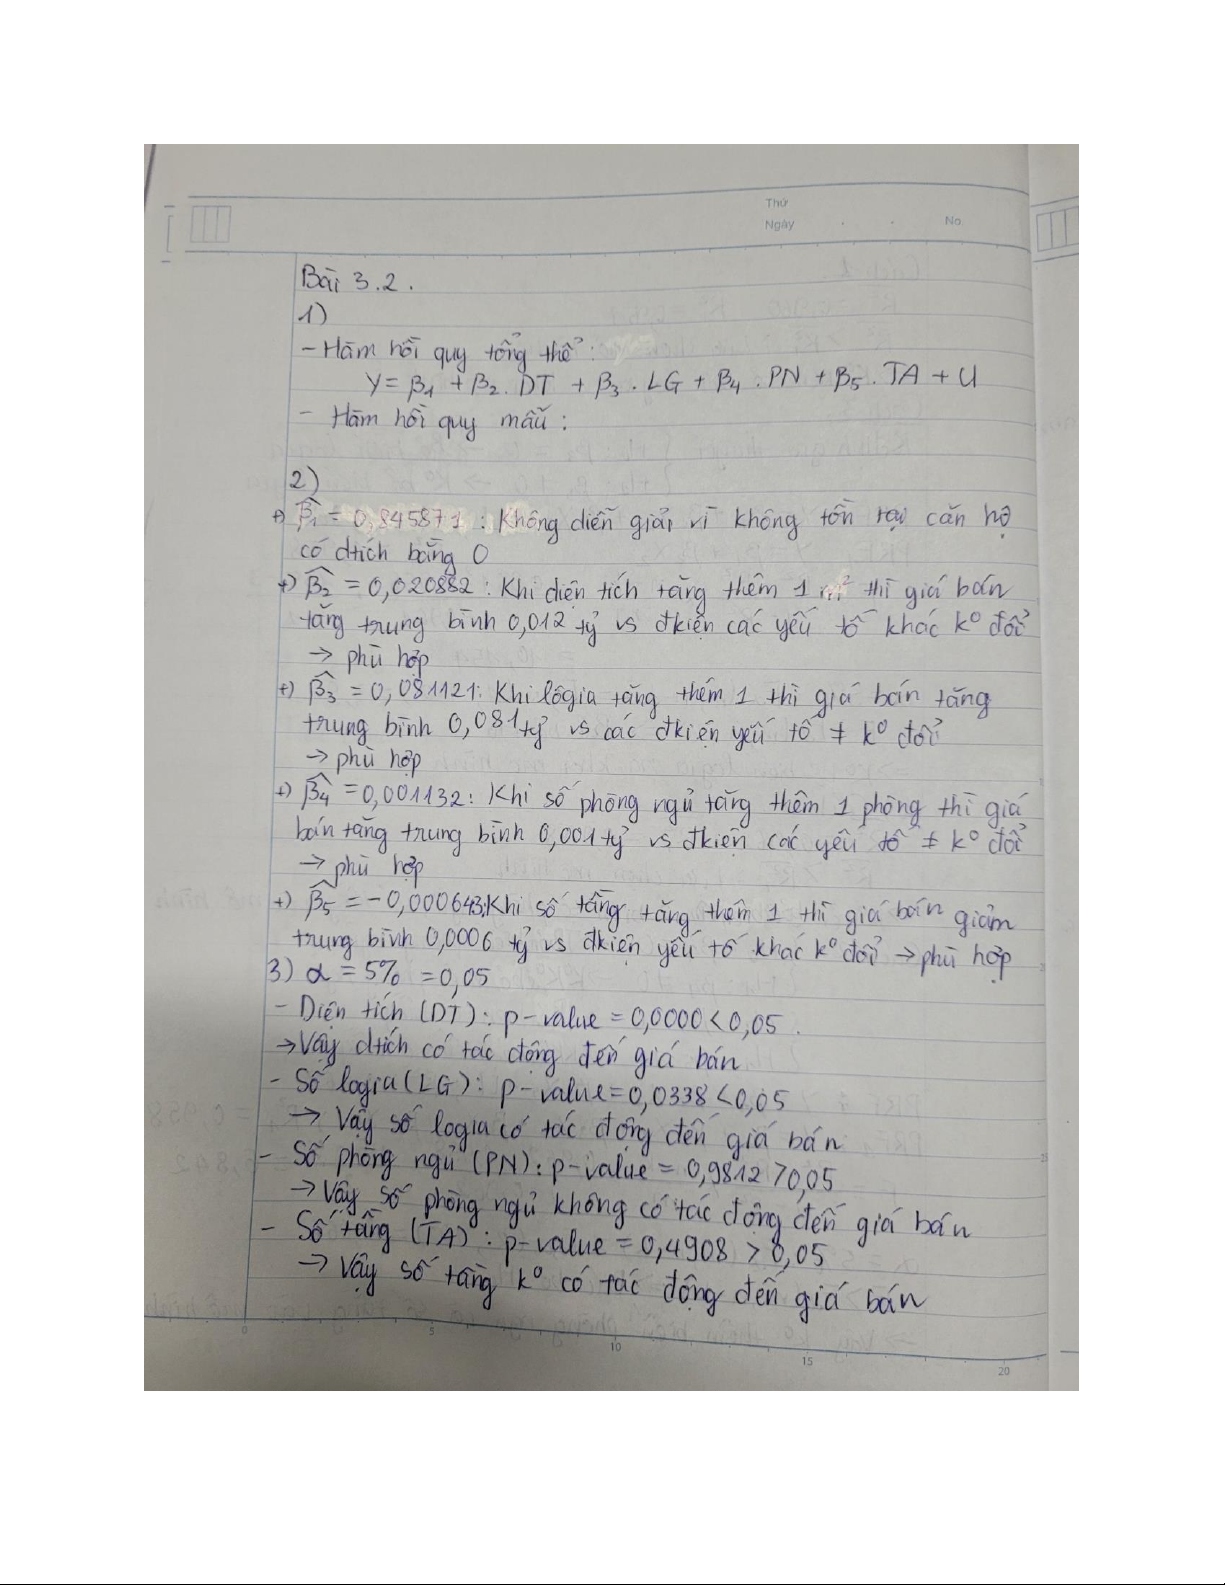 Thứ
Ngày . . No
Bài 3.2.
1)
- Hàm hồi quy tổng thể:
Y = β1 + β2. DT + β3. LG + β4. PN + β5. TA + U
- Hàm hồi quy mẫu:
2)
+) β̂1 = 0,845871 : Không diễn giải vì không tồn tại căn hộ
có dtích bằng 0
+) β̂2 = 0,020882 : Khi diện tích tăng thêm 1 m² thì giá bán
tăng trung bình 0,012 tỷ vs đkiện các yếu tố khác k° đổi
→ phù hợp
+) β̂3 = 0,081121: Khi lôgia tăng thêm 1 thì giá bán tăng
trung bình 0,081 tỷ vs các đkiện yếu tố ≠ k° đổi
→ phù hợp
+) β̂4 = 0,001132: Khi số phòng ngủ tăng thêm 1 phòng thì giá
bán tăng trung bình 0,001 tỷ vs đkiện các yếu tố ≠ k° đổi
→ phù hợp
+) β̂5 = -0,000643:Khi số tầng tăng thêm 1 thì giá bán giảm
trung bình 0,0006 tỷ vs đkiện yếu tố khác k° đổi → phù hợp
3) α = 5% = 0,05
- Diện tích (DT): p-value = 0,0000 < 0,05.
→ Vậy dtích có tác động đến giá bán
- Số logia (LG): p-value = 0,0338 < 0,05
→ Vậy số logia có tác động đến giá bán
- Số phòng ngủ (PN): p-value = 0,9812 > 0,05
→ Vậy số phòng ngủ không có tác động đến giá bán
- Số tầng (TA): p-value = 0,4908 > 0,05
→ Vậy số tầng k° có tác động đến giá bán
0 5 10 15 20